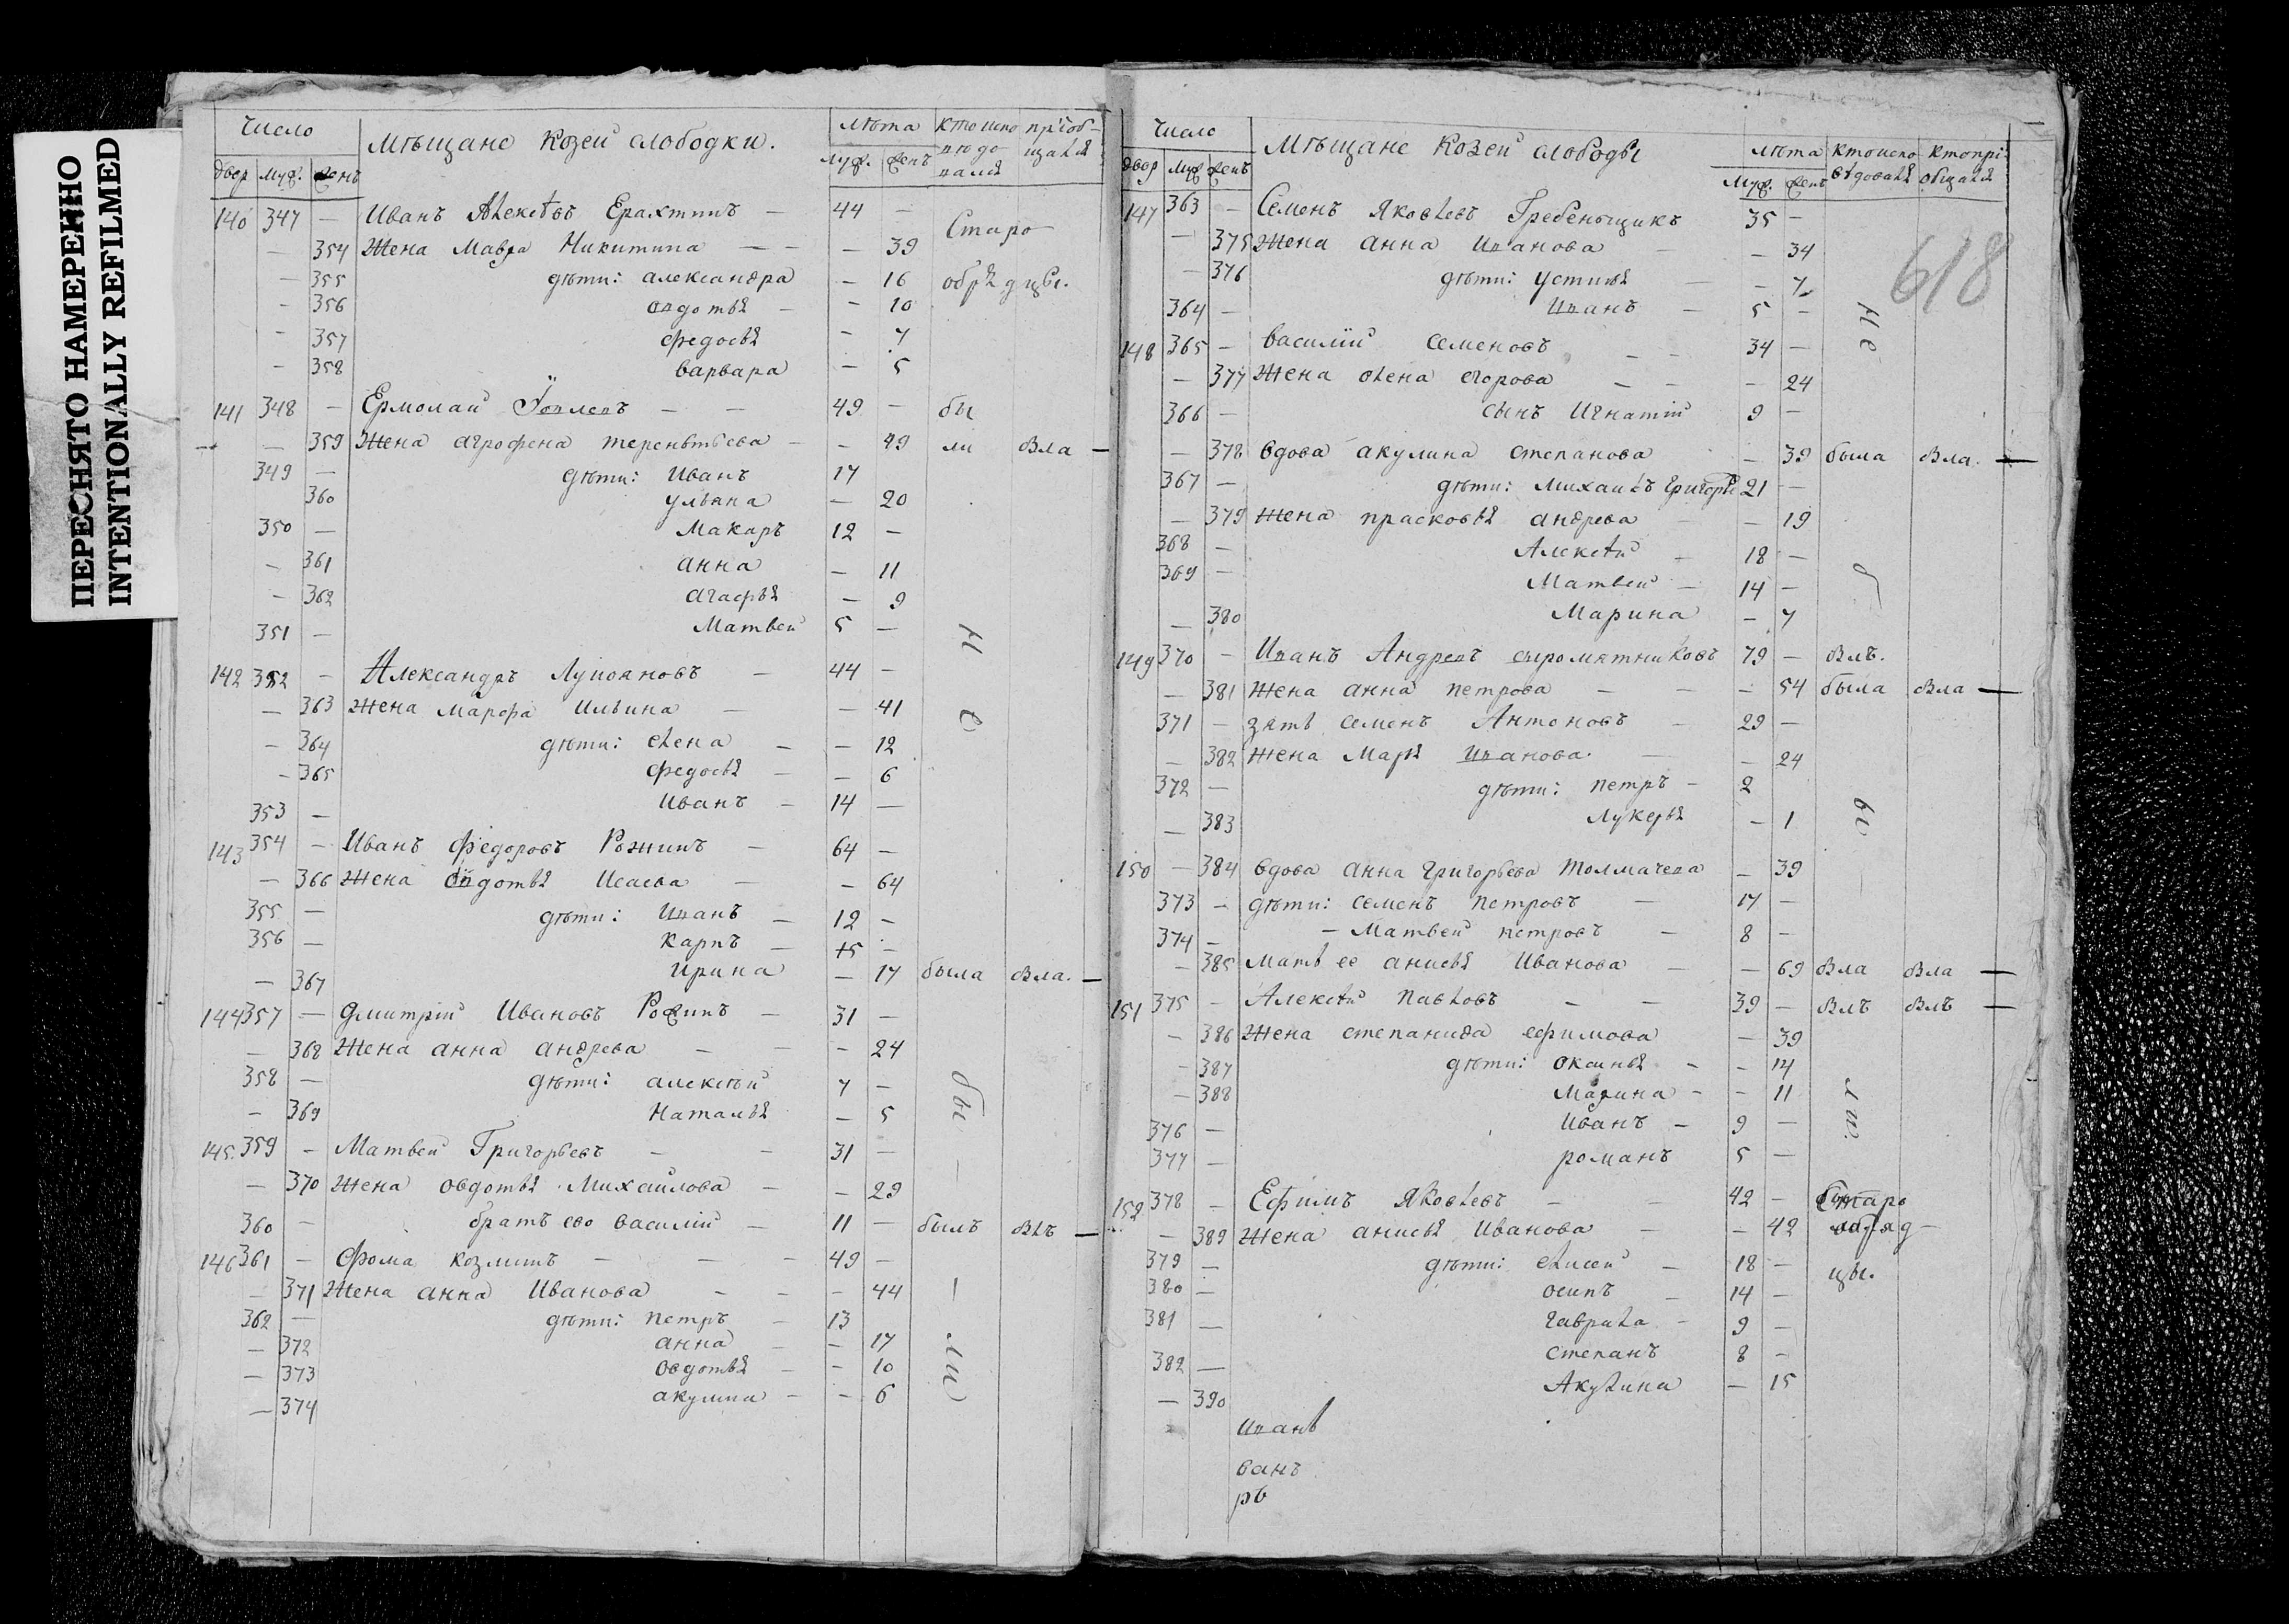 ПЕРЕСНЯТО НАМЕРЕННО
INTENTIONALLY REFILMED
Число Мѣщане Козей слободки. лѣта ктоиспо
двор муж. женъ муж. женъ
140 347 — Иванъ Алексѣевъ Ерахтинъ — 44 — Старо
— 354 Жена Мавра Никитина — — — 39
— 355 дѣти: александра — 16 обрядцы.
— 356 овдотья — — 10
— 357 федосья — 7
— 358 варвара — 5
141 348 — Ермолай — — 49 — бы
— 359 Жена агрофена терентьева — — 49 ли вла —
349 — дѣти: Иванъ 17
360 ульяна — 20
350 — Макаръ 12 —
— 361 анна — 11
— 362 агафья — 9
351 — Матвей 5 — не
142 352 — Александръ Лупояновъ — 44 —
— 363 Жена марфа ильина — — 41
— 364 дѣти: елена — — 12
— 365 федосья — — 6
353 — иванъ — 14 —
143 354 — Иванъ федоровъ Рожинъ — 64 —
— 366 Жена овдотья Исаева — — 64
355 — дѣти: иванъ — 12 —
356 — карпъ —
— 367 ирина — 17 была вла. —
144 357 — Дмитрій Ивановъ Рожинъ — 31 —
— 368 Жена анна андрева — — — 24
358 — дѣти: алексѣй 7 — бы
— 369 Наталья — 5
145. 359 — Матвей Григорьевъ — — 31 —
— 370 Жена овдотья Михайлова — — 29
360 — братъ ево василій — 11 — былъ влъ —
146 361 — Фома козминъ — — — 49 —
— 371 Жена анна Иванова — — — 44
362 — дѣти: петръ — 13
— 372 анна — — 17 ли
— 373 овдотья — — 10
— 374 акулина — — 6
Число Мѣщане Козей слободы лѣта ктоиспо ктопрі
двор муж женъ муж. женъ вѣдовался общался
147 363 — Семенъ Яковлевъ Гребеньщикъ 35 —
618
— 375 Жена анна иванова — — 34
— 376 дѣти: устинья — — 7
364 — иванъ — 5 — не
148 365 — василій семеновъ — — 34 —
— 377 Жена олена егорова — — — 24
366 — сынъ игнатій 9 —
— 378 вдова акулина степанова — 39 была вла. —
367 — дѣти: михаилъ григорье 21 —
— 379 Жена прасковья андрева — — 19
368 — Алексѣй — 18 —
369 — Матвей — 14 —
— 380 Марина — 7
149 370 — Иванъ Андревъ сыромятниковъ 79 — влъ.
— 381 Жена анна петрова — — — 54 была вла —
371 — зять семенъ Антоновъ — 29 —
— 382 Жена Марья иванова. — — 24
372 — дѣти: петръ — 2
— 383 лукерья — 1 бы
150 — 384 вдова анна григорьева толмачева — 39
373 — дѣти: семенъ петровъ — 17 —
374 — — Матвей петровъ — 8 —
— 385 мать ее анисья Иванова — — 69 вла вла —
151 375 — Алексѣй павловъ — — 39 — влъ влъ —
— 386 Жена степанида ефимова — 39
— 387 дѣти: оксинья — — 14
— 388 марина — — 11 ли.
376 — иванъ — 9 —
377 — романъ 5 —
152 378 — Ефимъ Яковлевъ — — 42 — старо
— 389 Жена анисья Иванова — — 42 обряд —
379 — дѣти: елисей — 18 — цы.
380 — осипъ — 14 —
381 — гаврила — 9 —
382 — степанъ 8 —
— 390 Акулина — 15
ивань
ванъ
рв